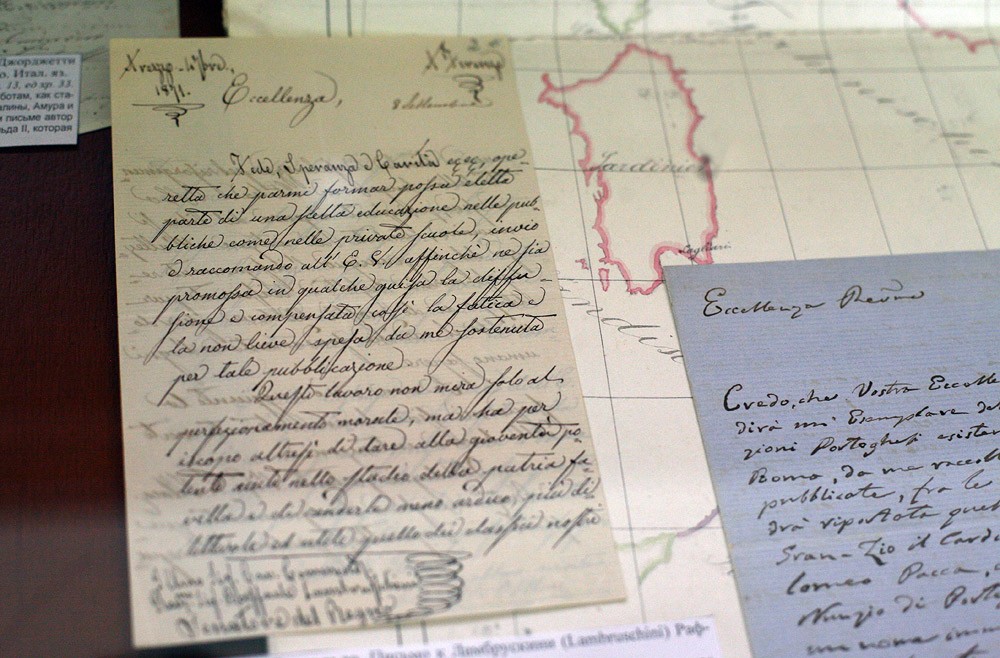 Джорджетти
о. Итал. яз.
13, ед хр. 33.
ботам, как ста-
алины, Амура и
письме автор
ьда II, которая
1871.
Eccellenza,
8 Settembre
Fede, Speranza e Carità ecc, ope-
retta che parmi formar possa eletta
parte di una scelta educazione nelle pub-
bliche come nelle private scuole, invio
e raccomando all' E. V. affinchè ne sia
promossa in qualche guisa la diffu-
sione e compensata così la fatica e
la non lieve spesa da me sostenuta
per tale pubblicazione.
Questo lavoro non mira solo al
perfezionamento morale, ma ha per
iscopo altresì di dare alla gioventù po-
tente aiuto nello studio della patria fa-
vella e di renderle meno arduo, più di-
lettevole ed utile quello dei classici nostri
Senatore del Regno
Sardinia
Cagliari
Eccellenza Revma
Credo, che Vostra Eccelle
dirà un Esemplare de
zioni Portoghesi esisten
Roma, da me raccolt
pubblicate, fra le
drà riportata ques
Gran-Zio il Cardi
lomeo Pacca,
Nunzio di Port
Письмо к Ламбрускини (Lambruschini) Раф-